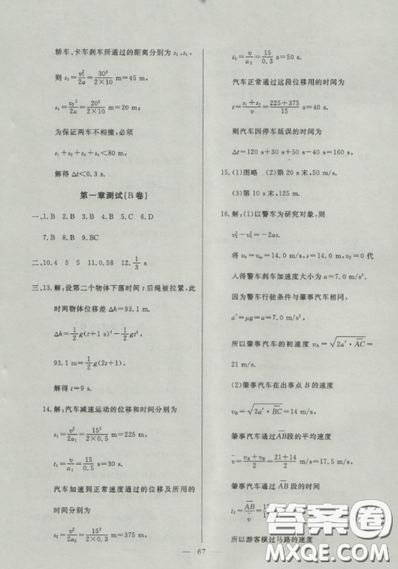 轿车、卡车刹车所通过的距离分别为s₁、s₂,
则s₁=v₁²/2a=30²/(2×10) m=45 m,
s₂=v₂²/2a=20²/(2×10) m=20 m;
为保证两车不相撞,必须
s₁+s₂+s₃+s₄<80 m,
解得 Δt<0.3 s.
第一章测试(B卷)
一、1. B 2. D 3. B 4. B 5. D 6. C
7. B 8. D 9. BC
二、10. 4 5 5 11. 0.58 12. 1/3 s
三、13. 解:设第二个物体下落时间t后绳被拉紧,此
时两物体位移差 Δh=93.1 m.
Δh=½g(t+1 s)²−½gt²,
93.1 m=½g(2t+1),
解得 t=9 s.
14. 解:汽车减速运动的位移和时间分别为
s₁=v²/2a₁=15²/(2×0.5) m=225 m,
t₁=v/a₁=15/0.5 s=30 s.
汽车加速到正常速度通过的位移及所用的
时间分别为
s₂=v²/2a₂=15²/(2×0.3) m=375 m,
t₂=v/a₂=15/0.3 s=50 s.
汽车正常通过这段位移用的时间为
t=(s₁+s₂)/v=(225+375)/15 s=40 s.
则汽车因停车延误的时间为
Δt=120 s+30 s+50 s−40 s=160 s
15. (1)图略 (2)第20 s末,50 m/s.
(3)第10 s末,125 m.
16. 解:(1)以警车为研究对象,则
将v₀=14.0 m/s, s=14.0 m, vₜ=0代
入得警车刹车加速度大小为a=7.0 m/s²,
因为警车行驶条件与肇事汽车相同,
a′=μg=a=7.0 m/s².
所以肇事汽车的初速度 v_A=√(2a′·AC)=
21 m/s.
(2)肇事汽车在出事点B的速度
v_B=√(2a′·BC)=14 m/s,
肇事汽车通过AB段的平均速度
v=(v_A+v_B)/2=(21+14)/2 m/s=17.5 m/s.
肇事汽车通过AB段的时间
所以游客横过马路的速度
67
答案圈
MXQE.COM